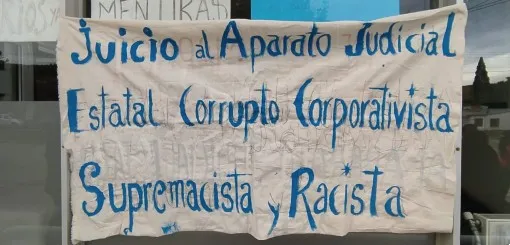 MENTIRAS
Juicio al Aparato Judicial
Estatal Corrupto Corporativista
Supremacista y Racista